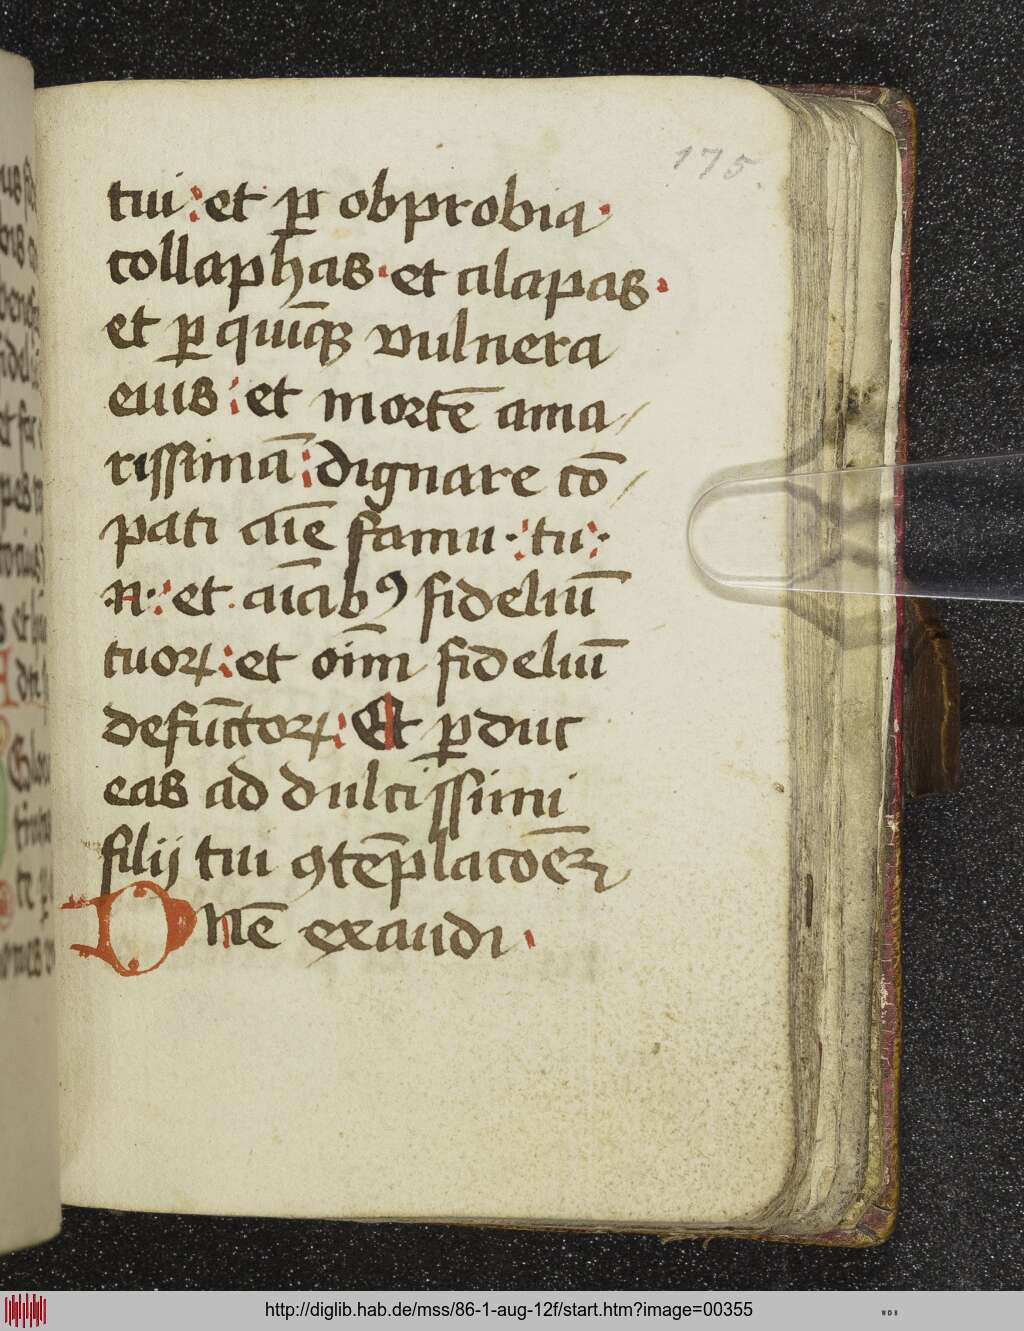 175.
tui: et ꝑ obprobia·
collaphas· et alapas·
et ꝑ quīqꝫ vulnera
eius: et mortē ama/
rissimā: dignare cō/
pati aīe famu·: tu:·
n·: et aīabꝰ fideliū
tuoꝝ: et oīm fideliū
defūctoꝝ: Et ꝑduc
eas ad dulcissimi
filij tui ꝯtēplacōēꝫ
Dnē exaudi·
http://diglib.hab.de/mss/86-1-aug-12f/start.htm?image=00355